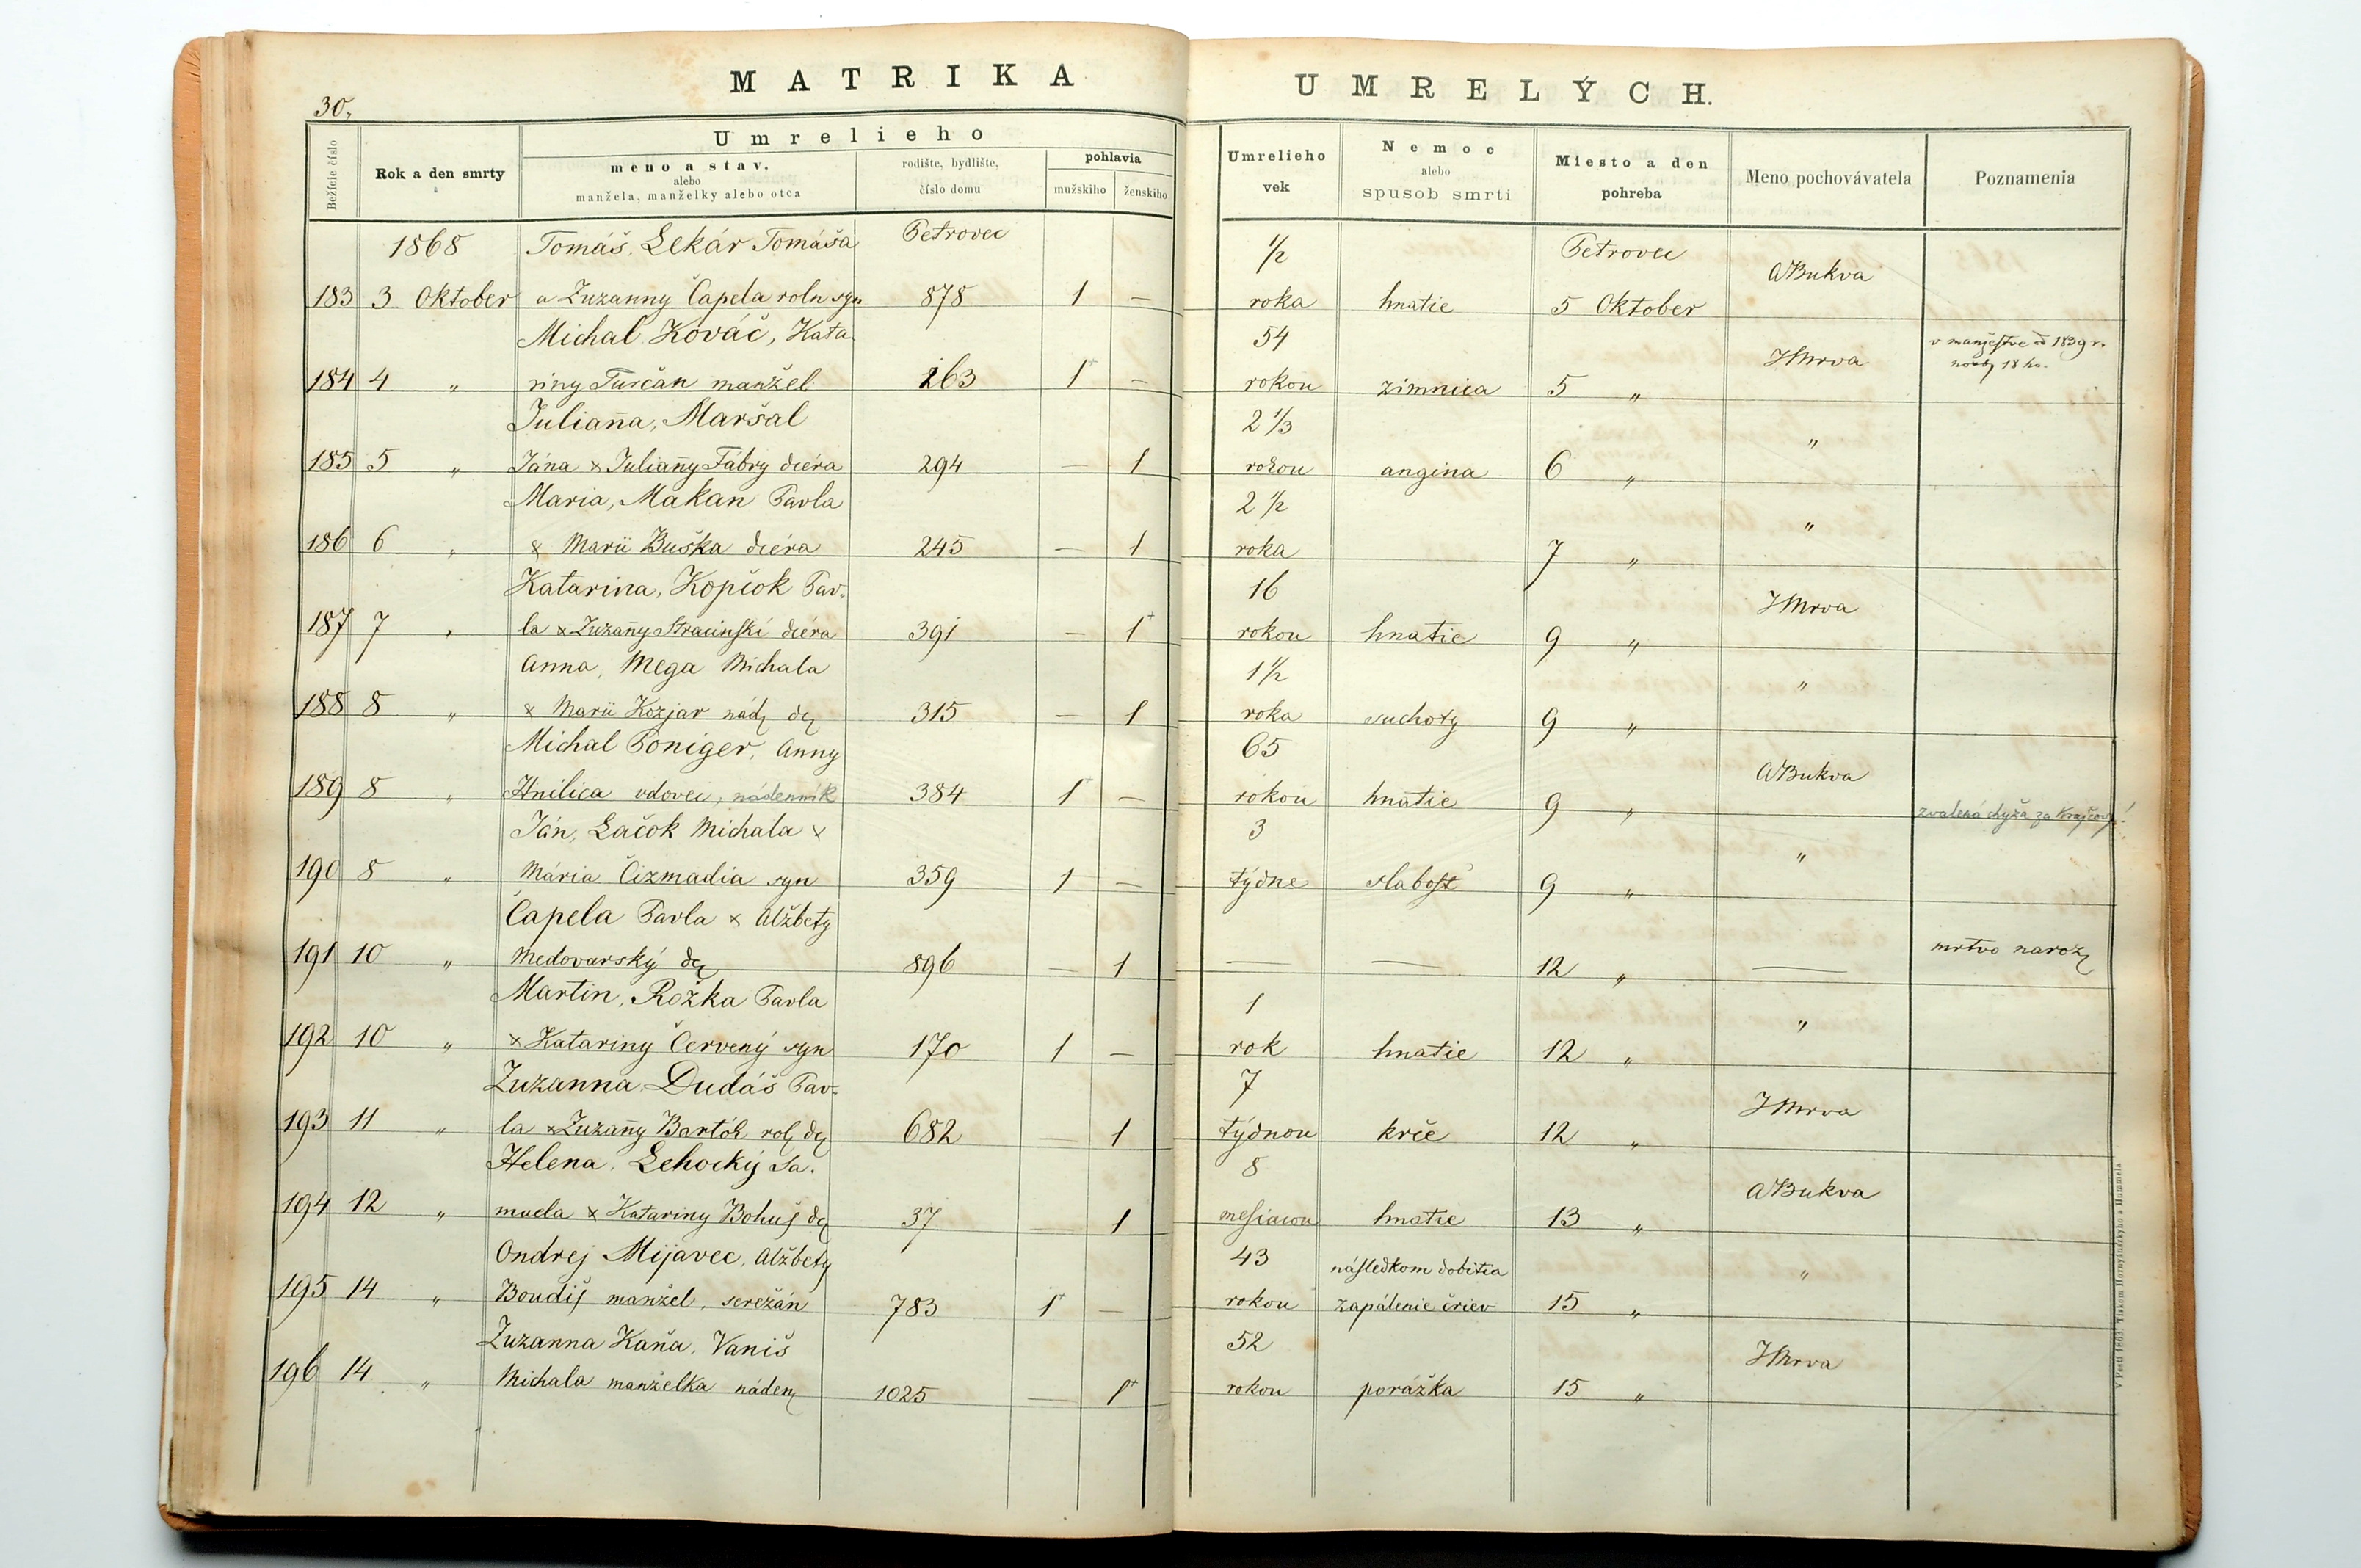 MATRIKA UMRELÝCH.
30.
Bežície číslo
Rok a den smrty
Umrelieho
meno a stav.
alebo
manžela, manželky alebo otca
rodište, bydlište,
číslo domu
pohlavia
mužskiho
ženskiho
Umrelieho
vek
Nemoc
alebo
spusob smrti
Miesto a den
pohreba
Meno pochovávatela
Poznamenia
1868 Tomáš, Lekár Tomáša Petrovec ½ Petrovec ABukva
183 3 Oktober a Zuzanny Čapela roln syn 878 1 — roka hnatie 5 Oktober
Michal Kováč, Kata 54 JMrva v manžestve od 1839 r.
184 4 " riny Turčan manžel 263 1+ — rokou zimnica 5 " 18 ho.
Julian̄a, Maršal 2 ⅓ "
185 5 " Jána & Julian̄y Fábry dcéra 294 — 1 rokou angina 6 "
Maria, Makan Pavla 2 ½ "
186 6 " & Marii Buška dcéra 245 — 1 roka 7 "
Katarina, Kopčok Pav- 16 JMrva
187 7 " la & Zuzan̄y Stracinski dcéra 391 — 1+ rokou hnatie 9 "
Anna, Mega Michala 1½ "
188 8 " & Marii Kozjar nád dc 315 — 1 roka suchoty 9 "
Michal Poniger, Anny 65 ABukva
189 8 " Hnilica vdovec, nádenník 384 1+ — rokou hnatie 9 " zvalená chyža za
Ján, Lačok Michala & 3 "
190 8 " Mária Čizmadia syn 359 1 — týdne slabosť 9 "
Čapela Pavla & Alžbety mrtvo naroz
191 10 " Medovarský dc 896 — 1 — — 12 " —
Martin, Rožka Pavla 1 "
192 10 " & Katariny Červený syn 170 1 — rok hnatie 12 "
Zuzanna Dudáš Pav- 7 JMrva
193 11 " la & Zuzan̄y Bartók rol dc 682 — 1 týdnou krče 12 "
Helena, Lehocký Sa. 8 ABukva
194 12 " muela & Katariny Bohuš dc 37 1 mesiacou hnatie 13 "
Ondrej Mijavec, Alžbety 43 následkom dobitia "
195 14 " Boudiš manžel, serežán 783 1+ — rokou zapálenie čriev 15 "
Zuzanna Kaňa, Vaniš 52 JMrva
196 14 " Michala manželka náden 1025 — 1+ rokou porážka 15 "
V Pešti 1863. Tlakom Hornyánszkyho a Hummela